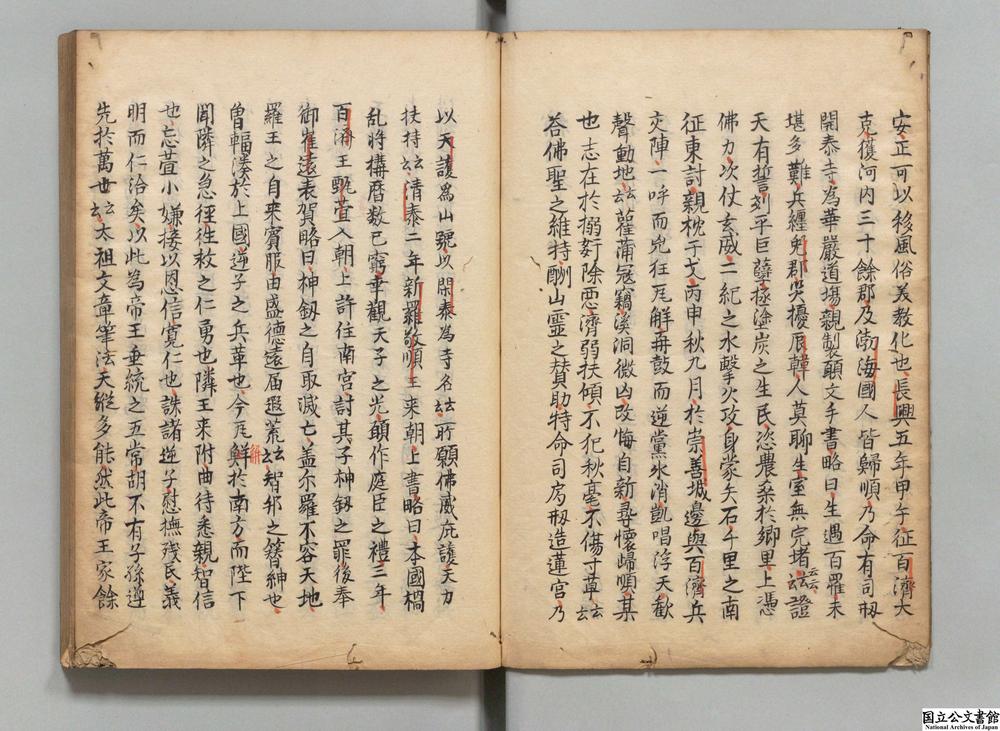 安正可以移風俗美教化也長興五年甲午征百濟大
克獲河內三十餘郡及渤海國人皆歸順乃命有司刱
開泰寺為華嚴道塲親製願文手書略曰生遇百罹未
堪多難兵纏兔郡災擾辰韓人莫聊生室無完堵云云證
天有誓剗平巨孽拯塗炭之生民恣農桑於鄉里上憑
佛力次仗玄威二紀之水擊火攻身蒙矢石千里之南
征東討親枕干戈丙申秋九月於崇善城邊與百濟兵
交陣一呼而兇狂瓦解再鼓而逆黨氷消凱唱浮天歡
聲動地云云雚蒲寇竊溪洞微凶改悔自新尋懷歸順某
也志在於搦姧除惡濟弱扶傾不犯秋毫不傷寸草云云
荅佛聖之維持酬山靈之賛助特命司房刱造蓮宮乃
以天護為山號以開泰為寺名云云所願佛威庇護天力
扶持云云清泰二年新羅敬順王来朝上書略曰本國櫊
乱將搆曆数已窮幸觀天子之光願作庭臣之禮三年
百濟王甄萱入朝上許住南宮討其子神釰之罪後奉
御崔遠表賀略曰神釰之自取滅亡盖尔羅不容天地
羅王之自来賓服由盛德遠届遐荒云云智邦之簪紳也
曽輻湊於上國逆子之兵革也今瓦鮮於南方而陛下
解
聞隣之急徑徃救之仁勇也隣王来附曲待悉親智信
也忘萱小嫌接以恩信寬仁也誅諸逆子慰撫残民義
明而仁洽矣以此為帝王垂統之五常胡不有子孫遵
先於萬世云云太祖文章筆法天縱多能然此帝王家餘
国立公文書館
National Archives of Japan